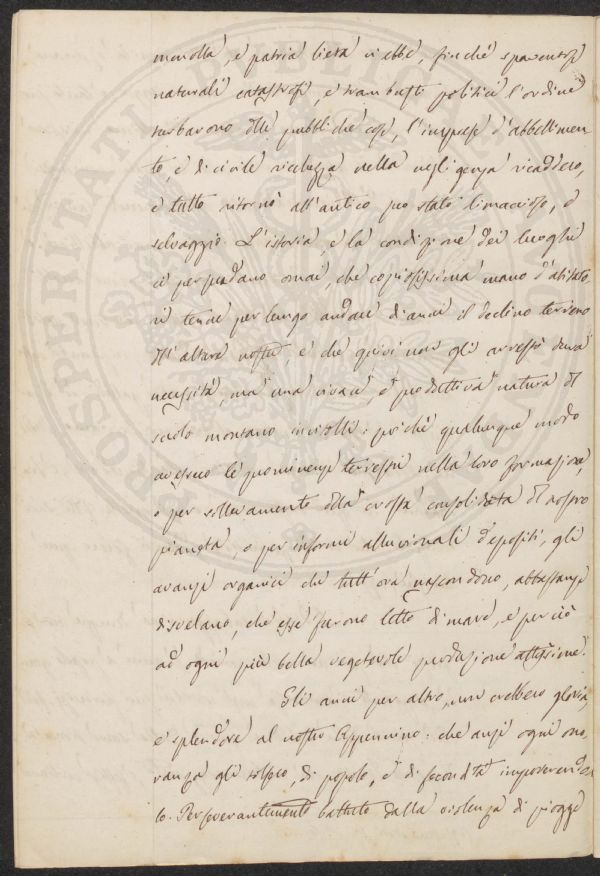 menolla, e patria lieta vi ebbe, finchè spaventose
naturali catastrofi, e trambusti politici l'ordine
turbarono dlle pubbliche cose, l'imprese d'abbellimen
to, e di civile ricchezza nella negligenza ricaddero,
e tutto ritornò all'antico suo stato limaccioso, e
selvaggio. L'istoria, e la condizione dei luoghi
ci persuadano omai, che copiosissima mano d'abitato
ri tenne per lungo andare di anni il declino terreno
dll'alture nostre, e che quivi non gli arrestò dura
necessità, ma una vivace, e produttiva natura dl
suolo montano invitolli: poichè qualunque modo
avessero le prominenze terrestri nella loro formazione,
o per sollevamento dlla crosta consolidata dl nostro
pianeta, o per informi alluvionali depositi, gli
avanzi organici che tutt'ora nascondono, abbastanza
disvelano, che esse furono letto di mare, e perciò
ad ogni più bella vegetevole produzione attissime.
Gli anni per altro, non crebbero gloria,
e splendore al nostro Appennino: che anzi ogni ono
ranza gli tolsero, di popolo, e di fecondità impoverendo
lo. Perseverantemente battuto dalla violenza di piogge
PROSPERITATI